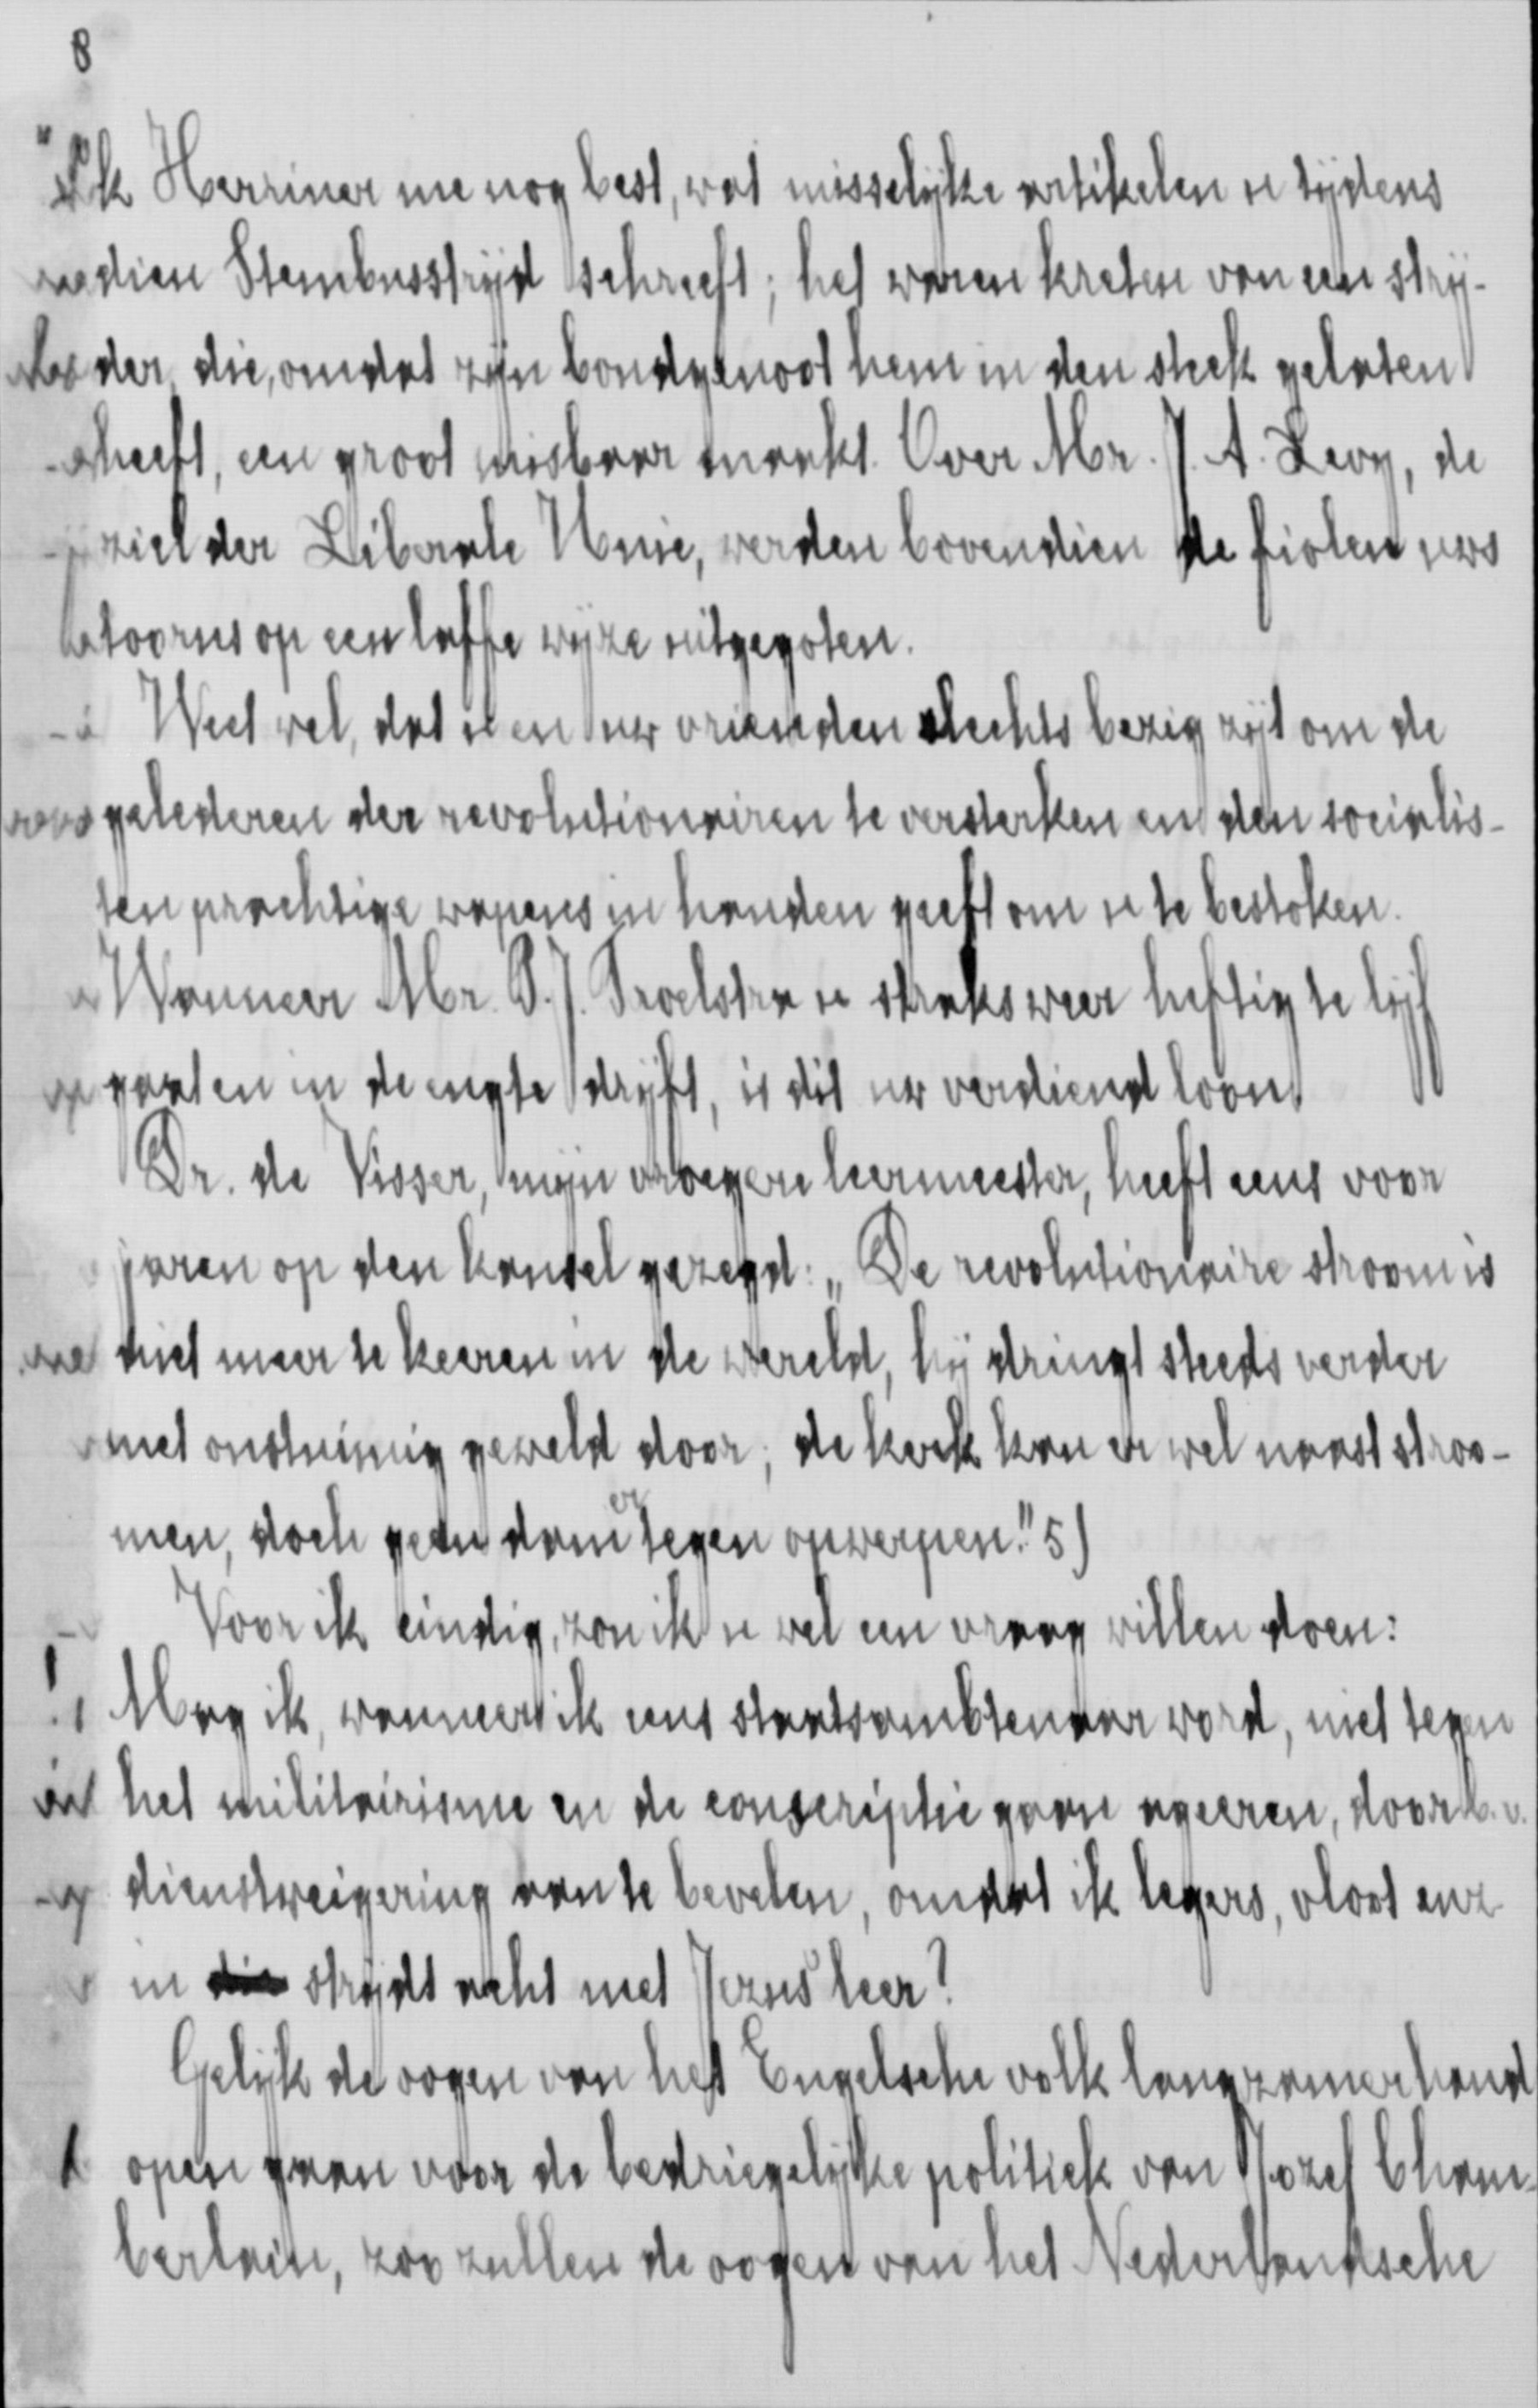 8
Ik Herriner me nog best, wat misselijke artikelen u tijdens
dien Stembusstrijd schreeft; het waren kreten van een strij-
der, die, omdat zijn bondgenoot hem in den steek gelaten
heeft, een groot misbaar maakt. Over Mr. J. A. Levy, de
ziel der Liberale Unie, werden bovendien de fiolen uws
toorns op een laffe wijze uitgegoten.
Weet wel, dat u en uw vrienden slechts bezig zijt om de
gelederen der revolutionairen te versterken en den socialis-
ten prachtige wapens in handen geeft om u te bestoken.
Wanneer Mr. P. J. Troelstra u straks weer heftig te lijf
gaat en in de engte drijft, is dit uw verdiend loon.
Dr. de Visser, mijn vroegere leermeester, heeft eens voor
jaren op den kansel gezegd: „De revolutionaire stroom is
niet meer te keeren in de wereld, hij dringt steeds verder
met onstuimig geweld door; de kerk kan er wel naast stroo-
men, doch geen dam er tegen opwerpen." 5)
Voor ik eindig, zou ik u wel een vraag willen doen:
Mag ik, wanneer ik eens staatsambtenaar word, niet tegen
het militairisme en de conscriptie gaan ageeren, door b.v.
dienstweigering aan te bevelen, omdat ik legers, vloot enz.
in strijdt acht met Jezus' leer?
Gelijk de oogen van het Engelsche volk langzamerhand
open gaan voor de bedriegelijke politiek van Jozef Cham-
berlain, zoo zullen de oogen van het Nederlandsche